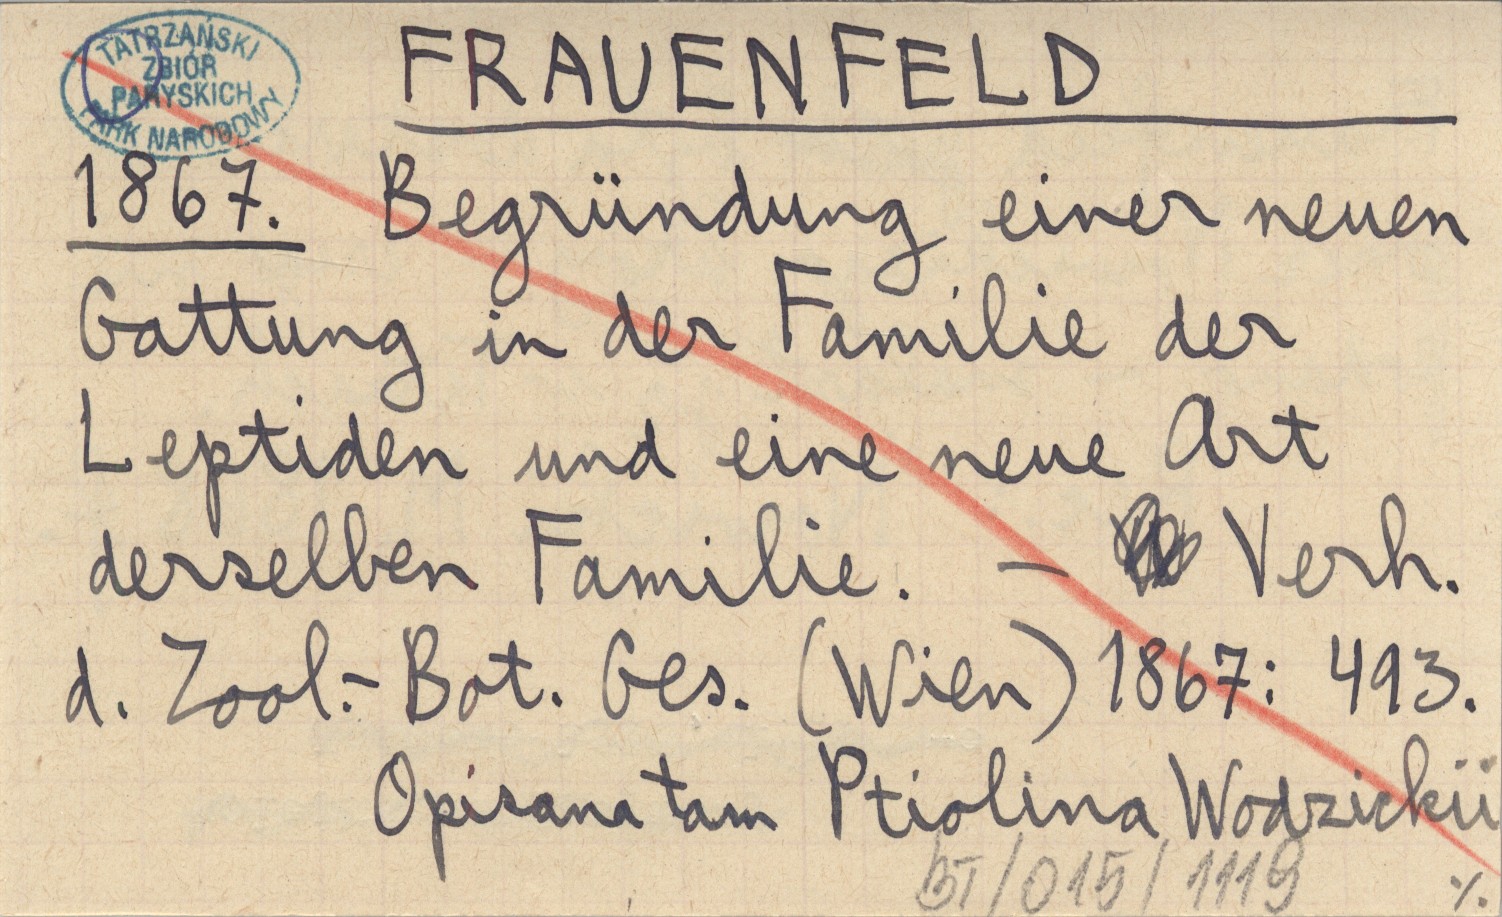 TATRZAŃSKI
ZBIÓR
PARYSKICH
PARK NARODOWY
FRAUENFELD
1867. Begründung einer neuen
Gattung in der Familie der
Leptiden und eine neue Art
derselben Familie. — Verh.
d. Zool.-Bot. Ges. (Wien) 1867: 493.
Opisana tam Ptiolina Wodzickii
BT/015/1119
·/.